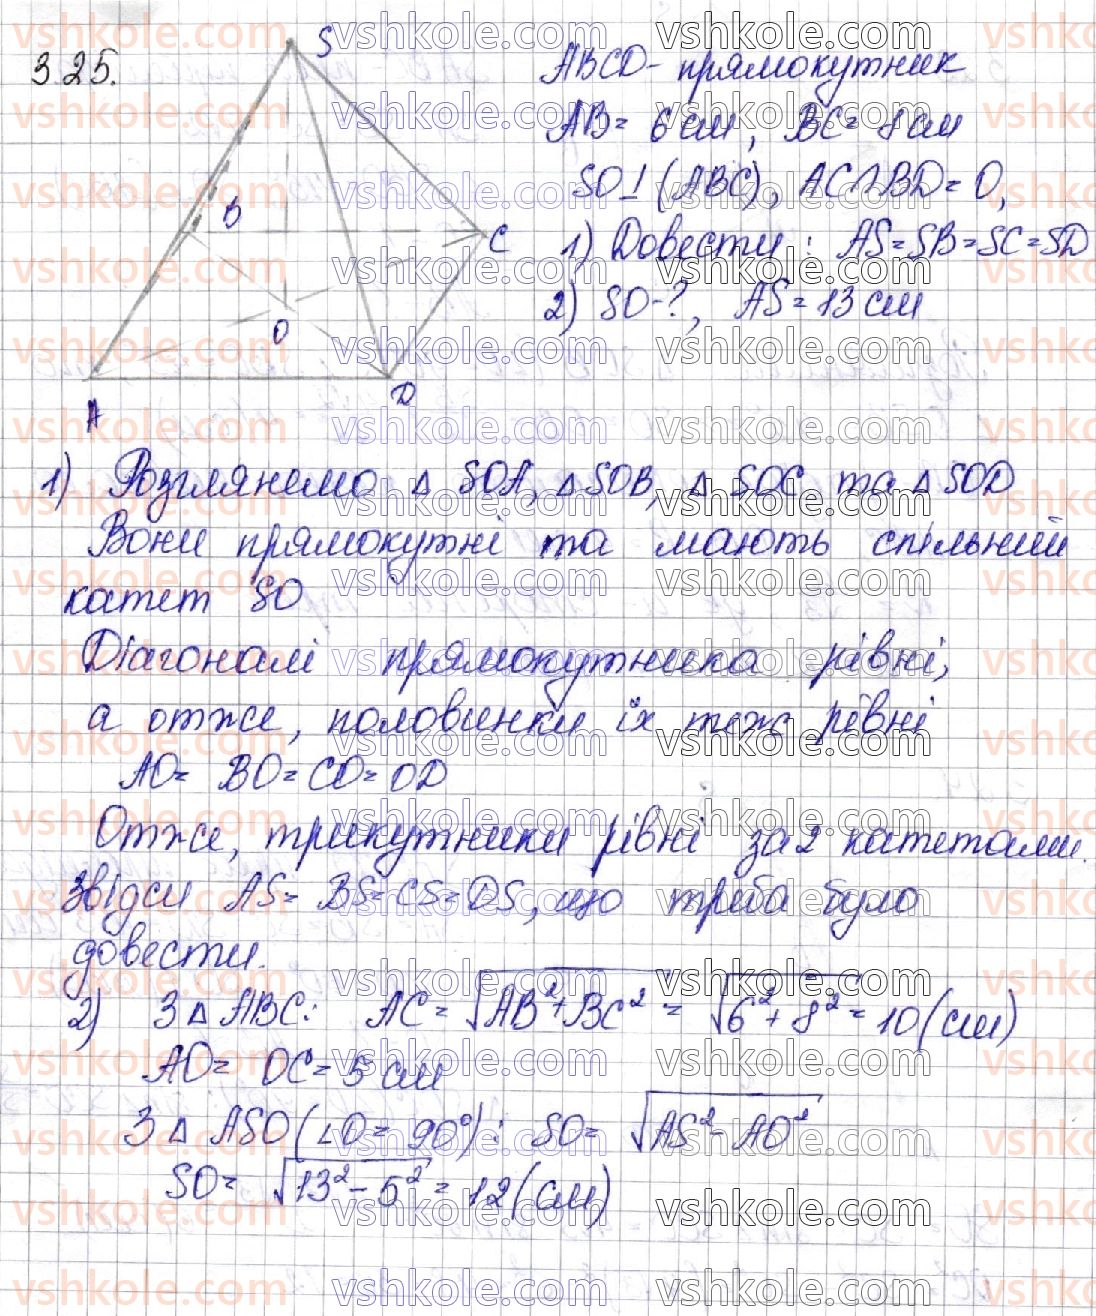 3.25.
S
B
C
O
A
D
ABCD - прямокутник
AB = 6 см, BC = 8 см
SO ⊥ (ABC), AC ∩ BD = O,
1) Довести : AS = SB = SC = SD
2) SO - ?, AS = 13 см
1) Розглянемо △ SOA, △ SOB, △ SOC та △ SOD
Вони прямокутні та мають спільний
катет SO
Діагоналі прямокутника рівні,
а отже, половинки їх теж рівні
AO = BO = CO = OD
Отже, трикутники рівні за 2 катетами.
Звідси AS = BS = CS = DS, що треба було
довести.
2) З △ ABC: AC = √(AB² + BC²) = √(6² + 8²) = 10 (см)
AO = OC = 5 см
З △ ASO (∠O = 90°): SO = √(AS² - AO²)
SO = √(13² - 5²) = 12 (см)
vshkole.com